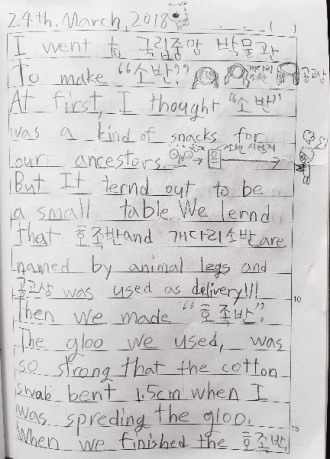 24th. March, 2018
I went to 국립중앙 박물관
To make "소반?"
공고상
At first, I thought "소반"
was a kind of snacks for
our ancestors.
But It ternd out to be
a small table. We lernd
that 호족반and 개다리소반are
named by animal legs and
공고상 was used as delivery!!!
10
Then we made "호족반".
The gloo we used, was
so strong that the cotton
swab bent 1.5cm when I
was spreding the gloo.
15
When we finished the 호족반,